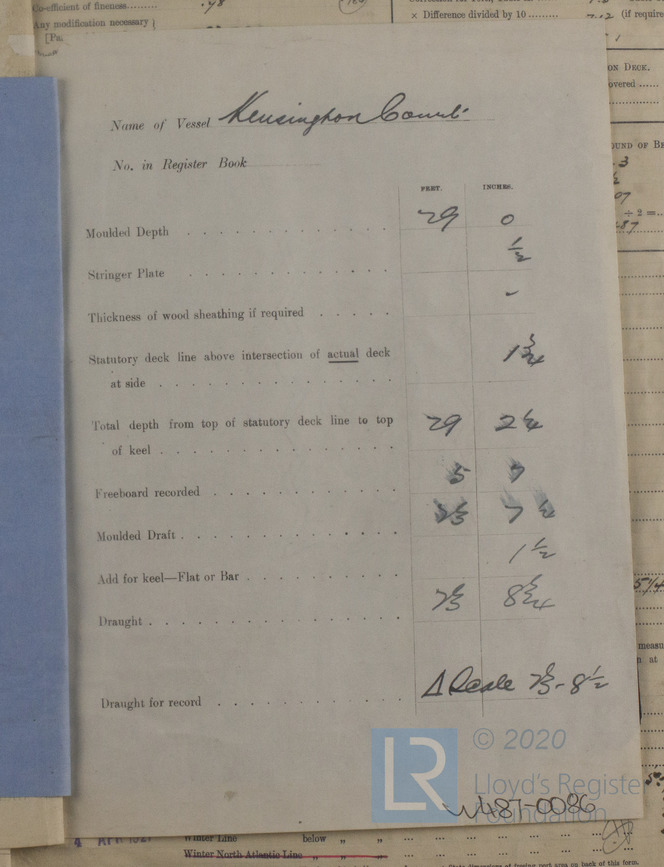 Co-efficient of fineness.........
Any modification necessary }
× Difference divided by 10 .........
(if require
ON DECK.
overed ......
Name of Vessel Kensington Court
No. in Register Book
FEET. INCHES.
Moulded Depth . . . . . . . . . . . . . 29 0
Stringer Plate . . . . . . . . . . . . . ½
Thickness of wood sheathing if required . . . . . -
Statutory deck line above intersection of actual deck 1¾
at side . . . . . . . . . . . . . .
Total depth from top of statutory deck line to top 29 2¼
of keel . . . . . . . . . . . . . .
Freeboard recorded . . . . . . . . . . . 5 7
Moulded Draft . . . . . . . . . . . . . 23 7 ¼
Add for keel—Flat or Bar . . . . . . . . . 1 ½
Draught . . . . . . . . . . . . . . . 23 8¾
Draught for record . . . . . . . . . . . Δ Scale 23-8½
LR © 2020
Lloyd's Registe
Foundation
W487-0086
Winter Line below „ „
Winter North Atlantic Line „ „